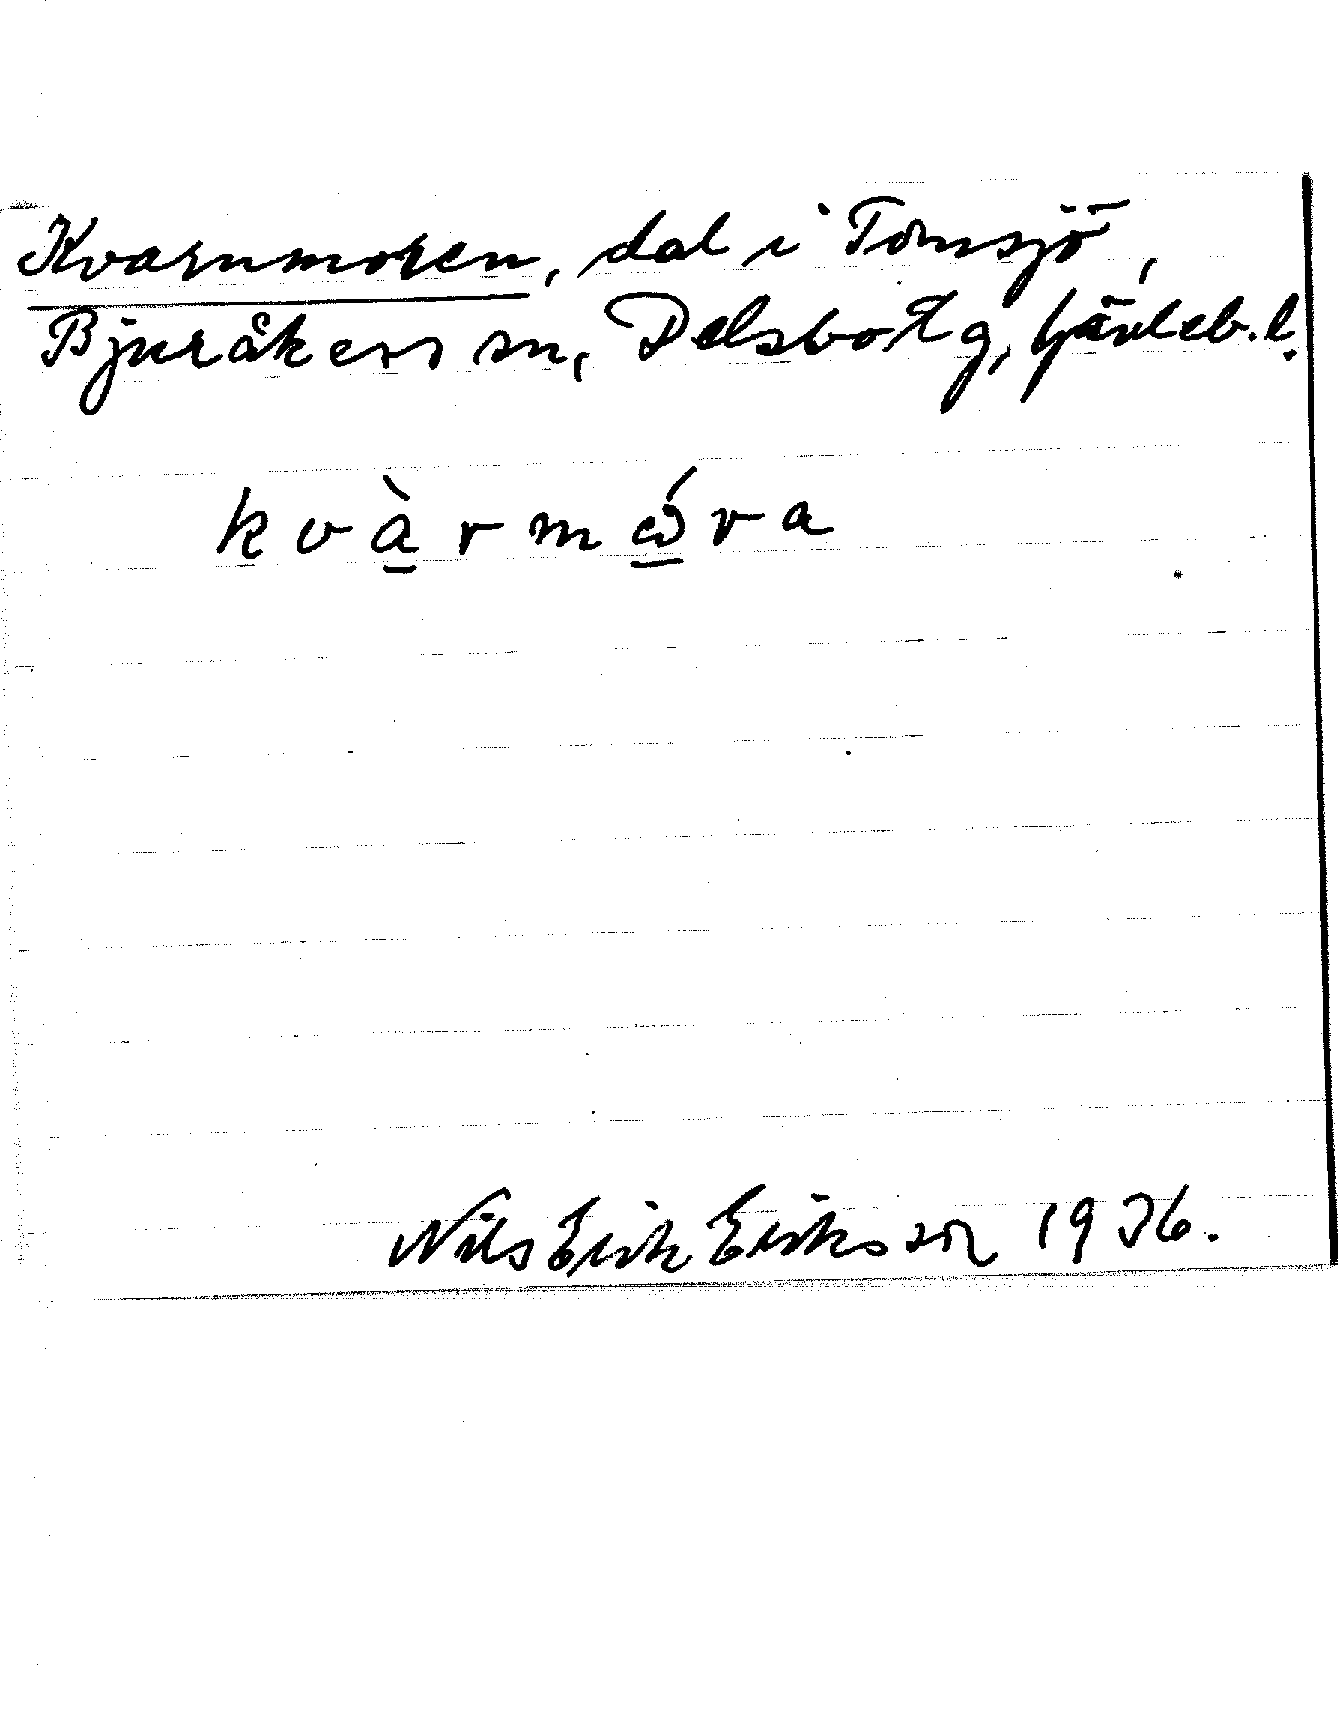 Kvarnmoren, dal i Tomsjö,
Bjuråkers sn, Delsbo tg, Gävleb. l.
kvàrmǿra
Nils Erik Eriksson 1936.